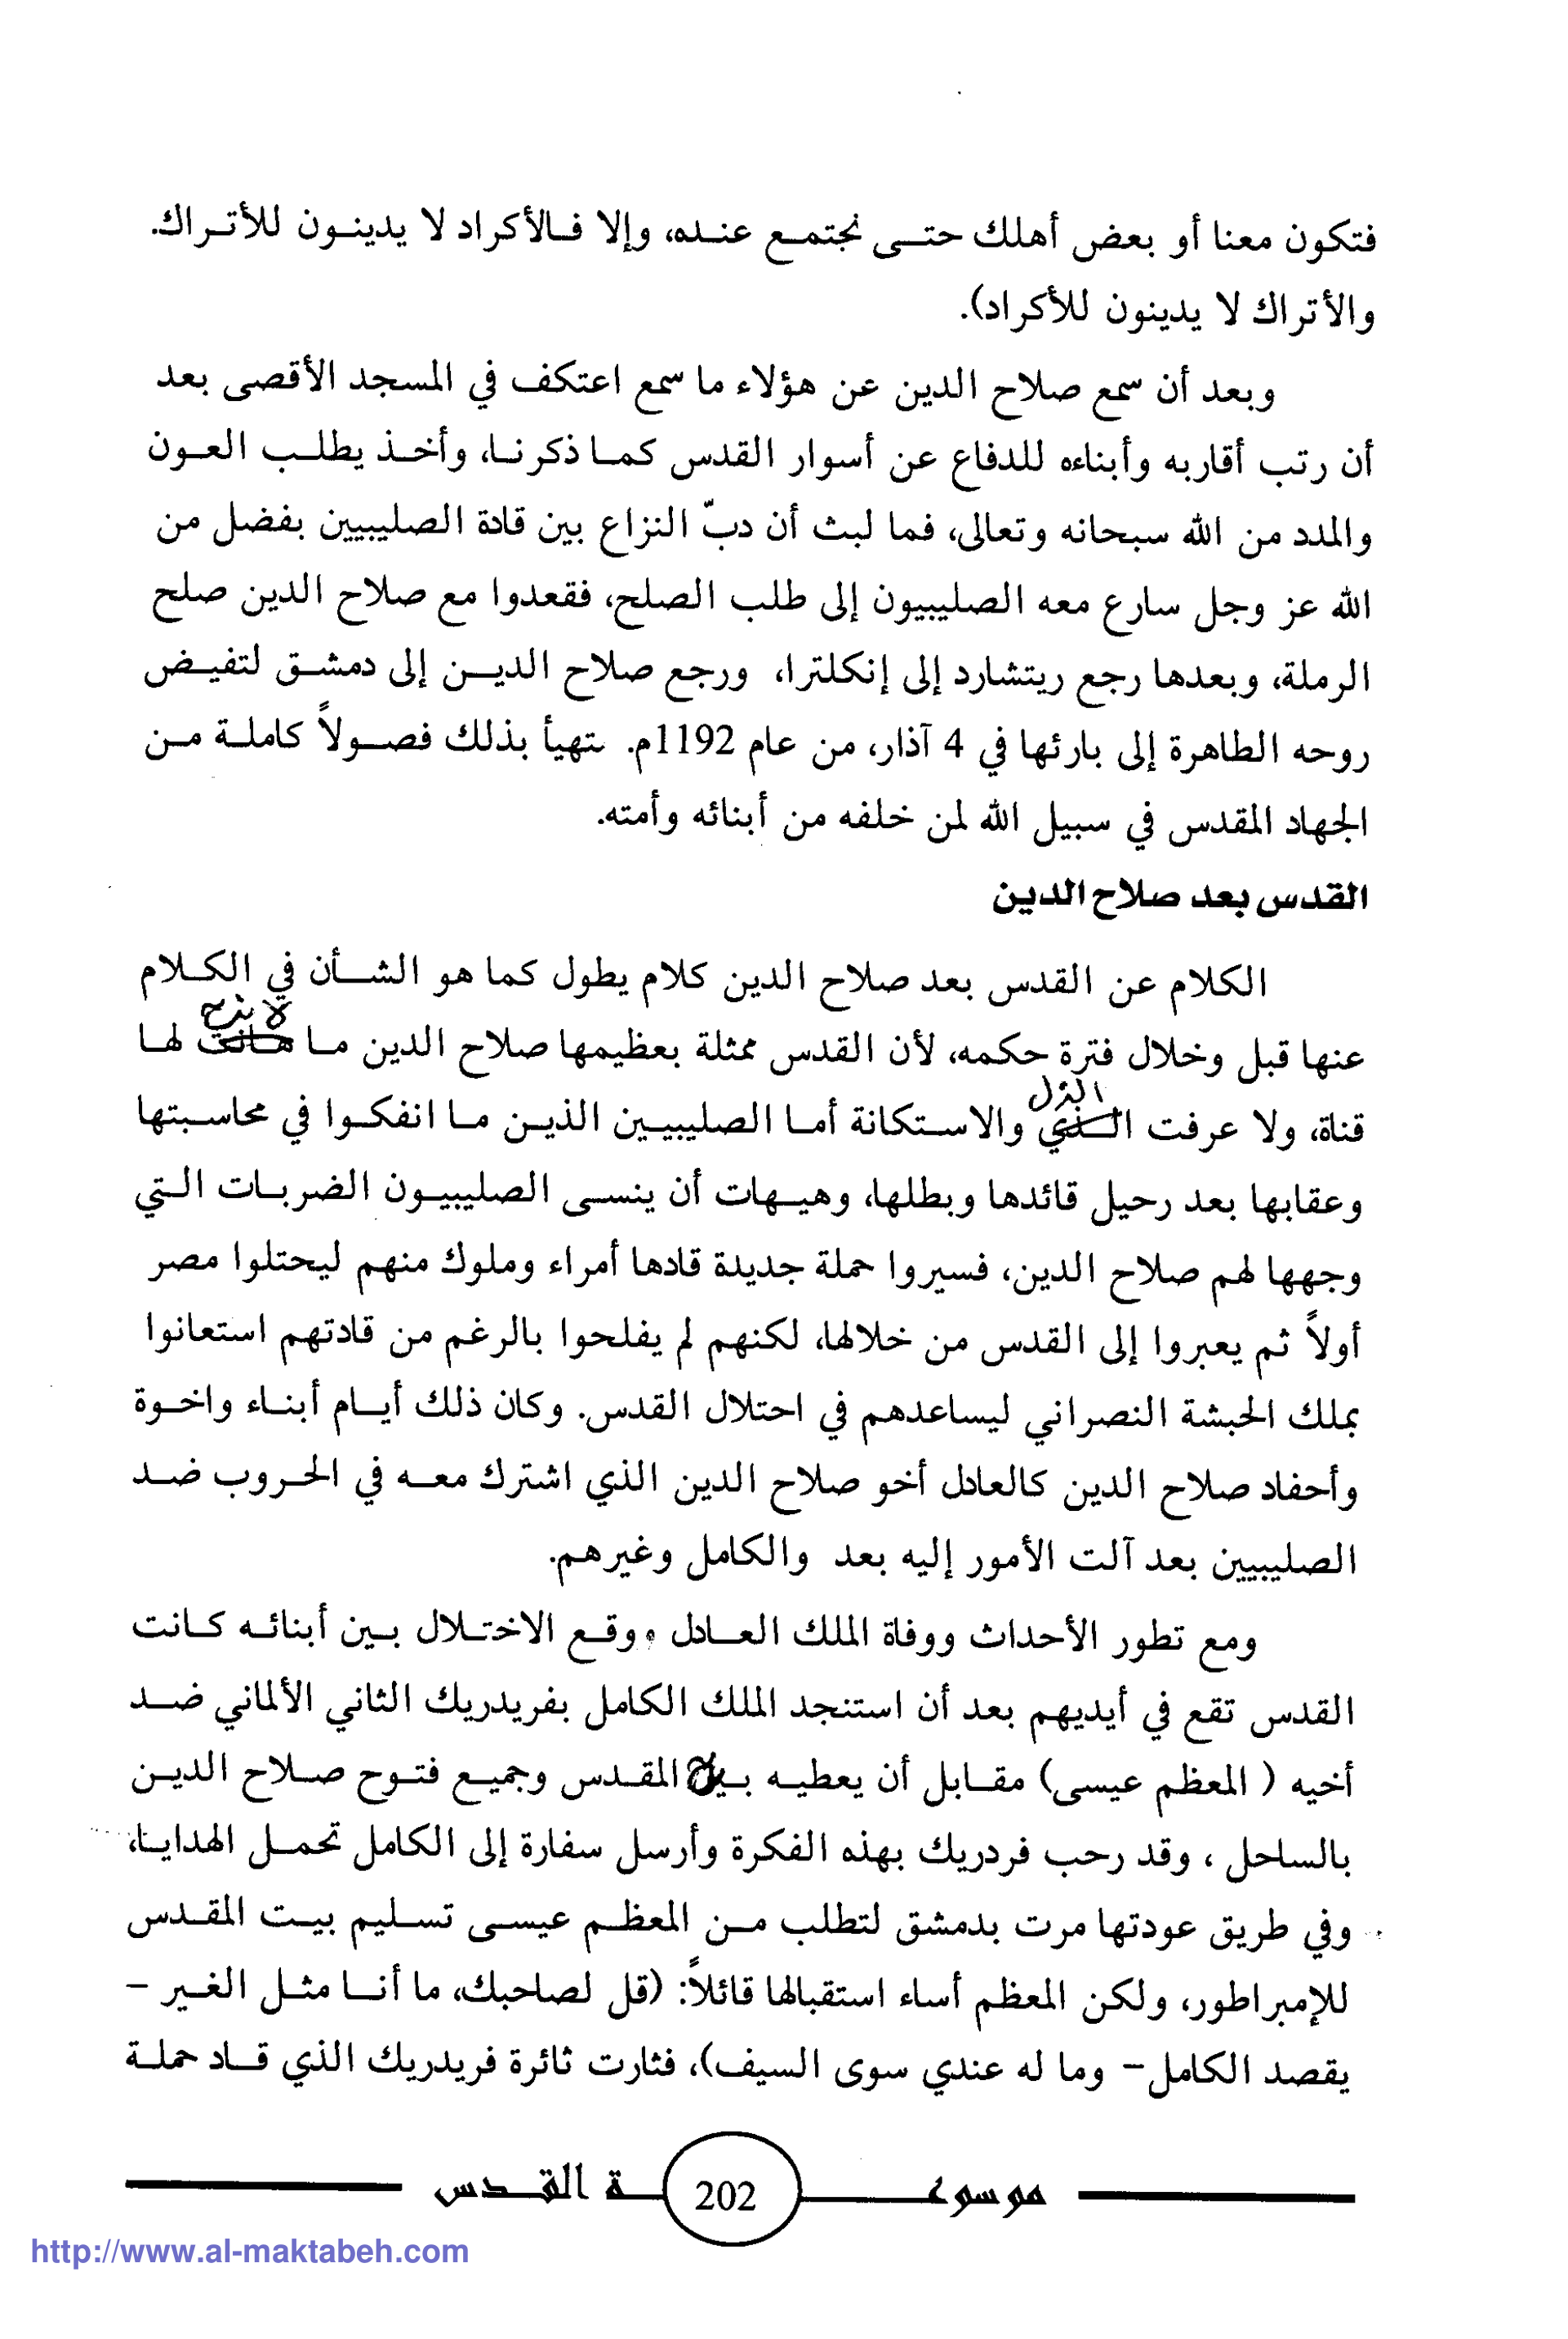 فتكون معنا أو بعض أهلك حتى نجتمع عنده، وإلا فالأكراد لا يدينون للأتراك.
والأتراك لا يدينون للأكراد).
وبعد أن سمع صلاح الدين عن هؤلاء ما سمع اعتكف في المسجد الأقصى بعد
أن رتب أقاربه وأبناءه للدفاع عن أسوار القدس كما ذكرنا، وأخذ يطلب العون
والمدد من الله سبحانه وتعالى، فما لبث أن دبّ النزاع بين قادة الصليبيين بفضل من
الله عز وجل سارع معه الصليبيون إلى طلب الصلح، فقعدوا مع صلاح الدين صلح
الرملة، وبعدها رجع ريتشارد إلى إنكلترا، ورجع صلاح الدين إلى دمشق لتفيض
روحه الطاهرة إلى بارئها في 4 آذار، من عام 1192م. ستهيأ بذلك فصولاً كاملة من
الجهاد المقدس في سبيل الله لمن خلفه من أبنائه وأمته.
القدس بعد صلاح الدين
الكلام عن القدس بعد صلاح الدين كلام يطول كما هو الشأن في الكلام
عنها قبل وخلال فترة حكمه، لأن القدس ممثلة بعظيمها صلاح الدين ما هانت لها
قناة، ولا عرفت الذل والاستكانة أما الصليبيين الذين ما انفكوا في محاسبتها
وعقابها بعد رحيل قائدها وبطلها، وهيهات أن ينسى الصليبيون الضربات التي
وجهها لهم صلاح الدين، فسيروا حملة جديدة قادها أمراء وملوك منهم ليحتلوا مصر
أولاً ثم يعبروا إلى القدس من خلالها، لكنهم لم يفلحوا بالرغم من قادتهم استعانوا
بملك الحبشة النصراني ليساعدهم في احتلال القدس. وكان ذلك أيام أبناء واخوة
وأحفاد صلاح الدين كالعادل أخو صلاح الدين الذي اشترك معه في الحروب ضد
الصليبيين بعد آلت الأمور إليه بعد والكامل وغيرهم.
ومع تطور الأحداث ووفاة الملك العادل ووقع الاختلال بين أبنائه كانت
القدس تقع في أيديهم بعد أن استنجد الملك الكامل بفريدريك الثاني الألماني ضد
أخيه ( المعظم عيسى) مقابل أن يعطيه بيت المقدس وجميع فتوح صلاح الدين
بالساحل ، وقد رحب فردريك بهذه الفكرة وأرسل سفارة إلى الكامل تحمل الهدايا،
وفي طريق عودتها مرت بدمشق لتطلب من المعظم عيسى تسليم بيت المقدس
للإمبراطور، ولكن المعظم أساء استقبالها قائلاً: (قل لصاحبك، ما أنا مثل الغير -
يقصد الكامل- وما له عندي سوى السيف)، فثارت ثائرة فريدريك الذي قاد حملة
موسوعة القدس
202
http://www.al-maktabeh.com